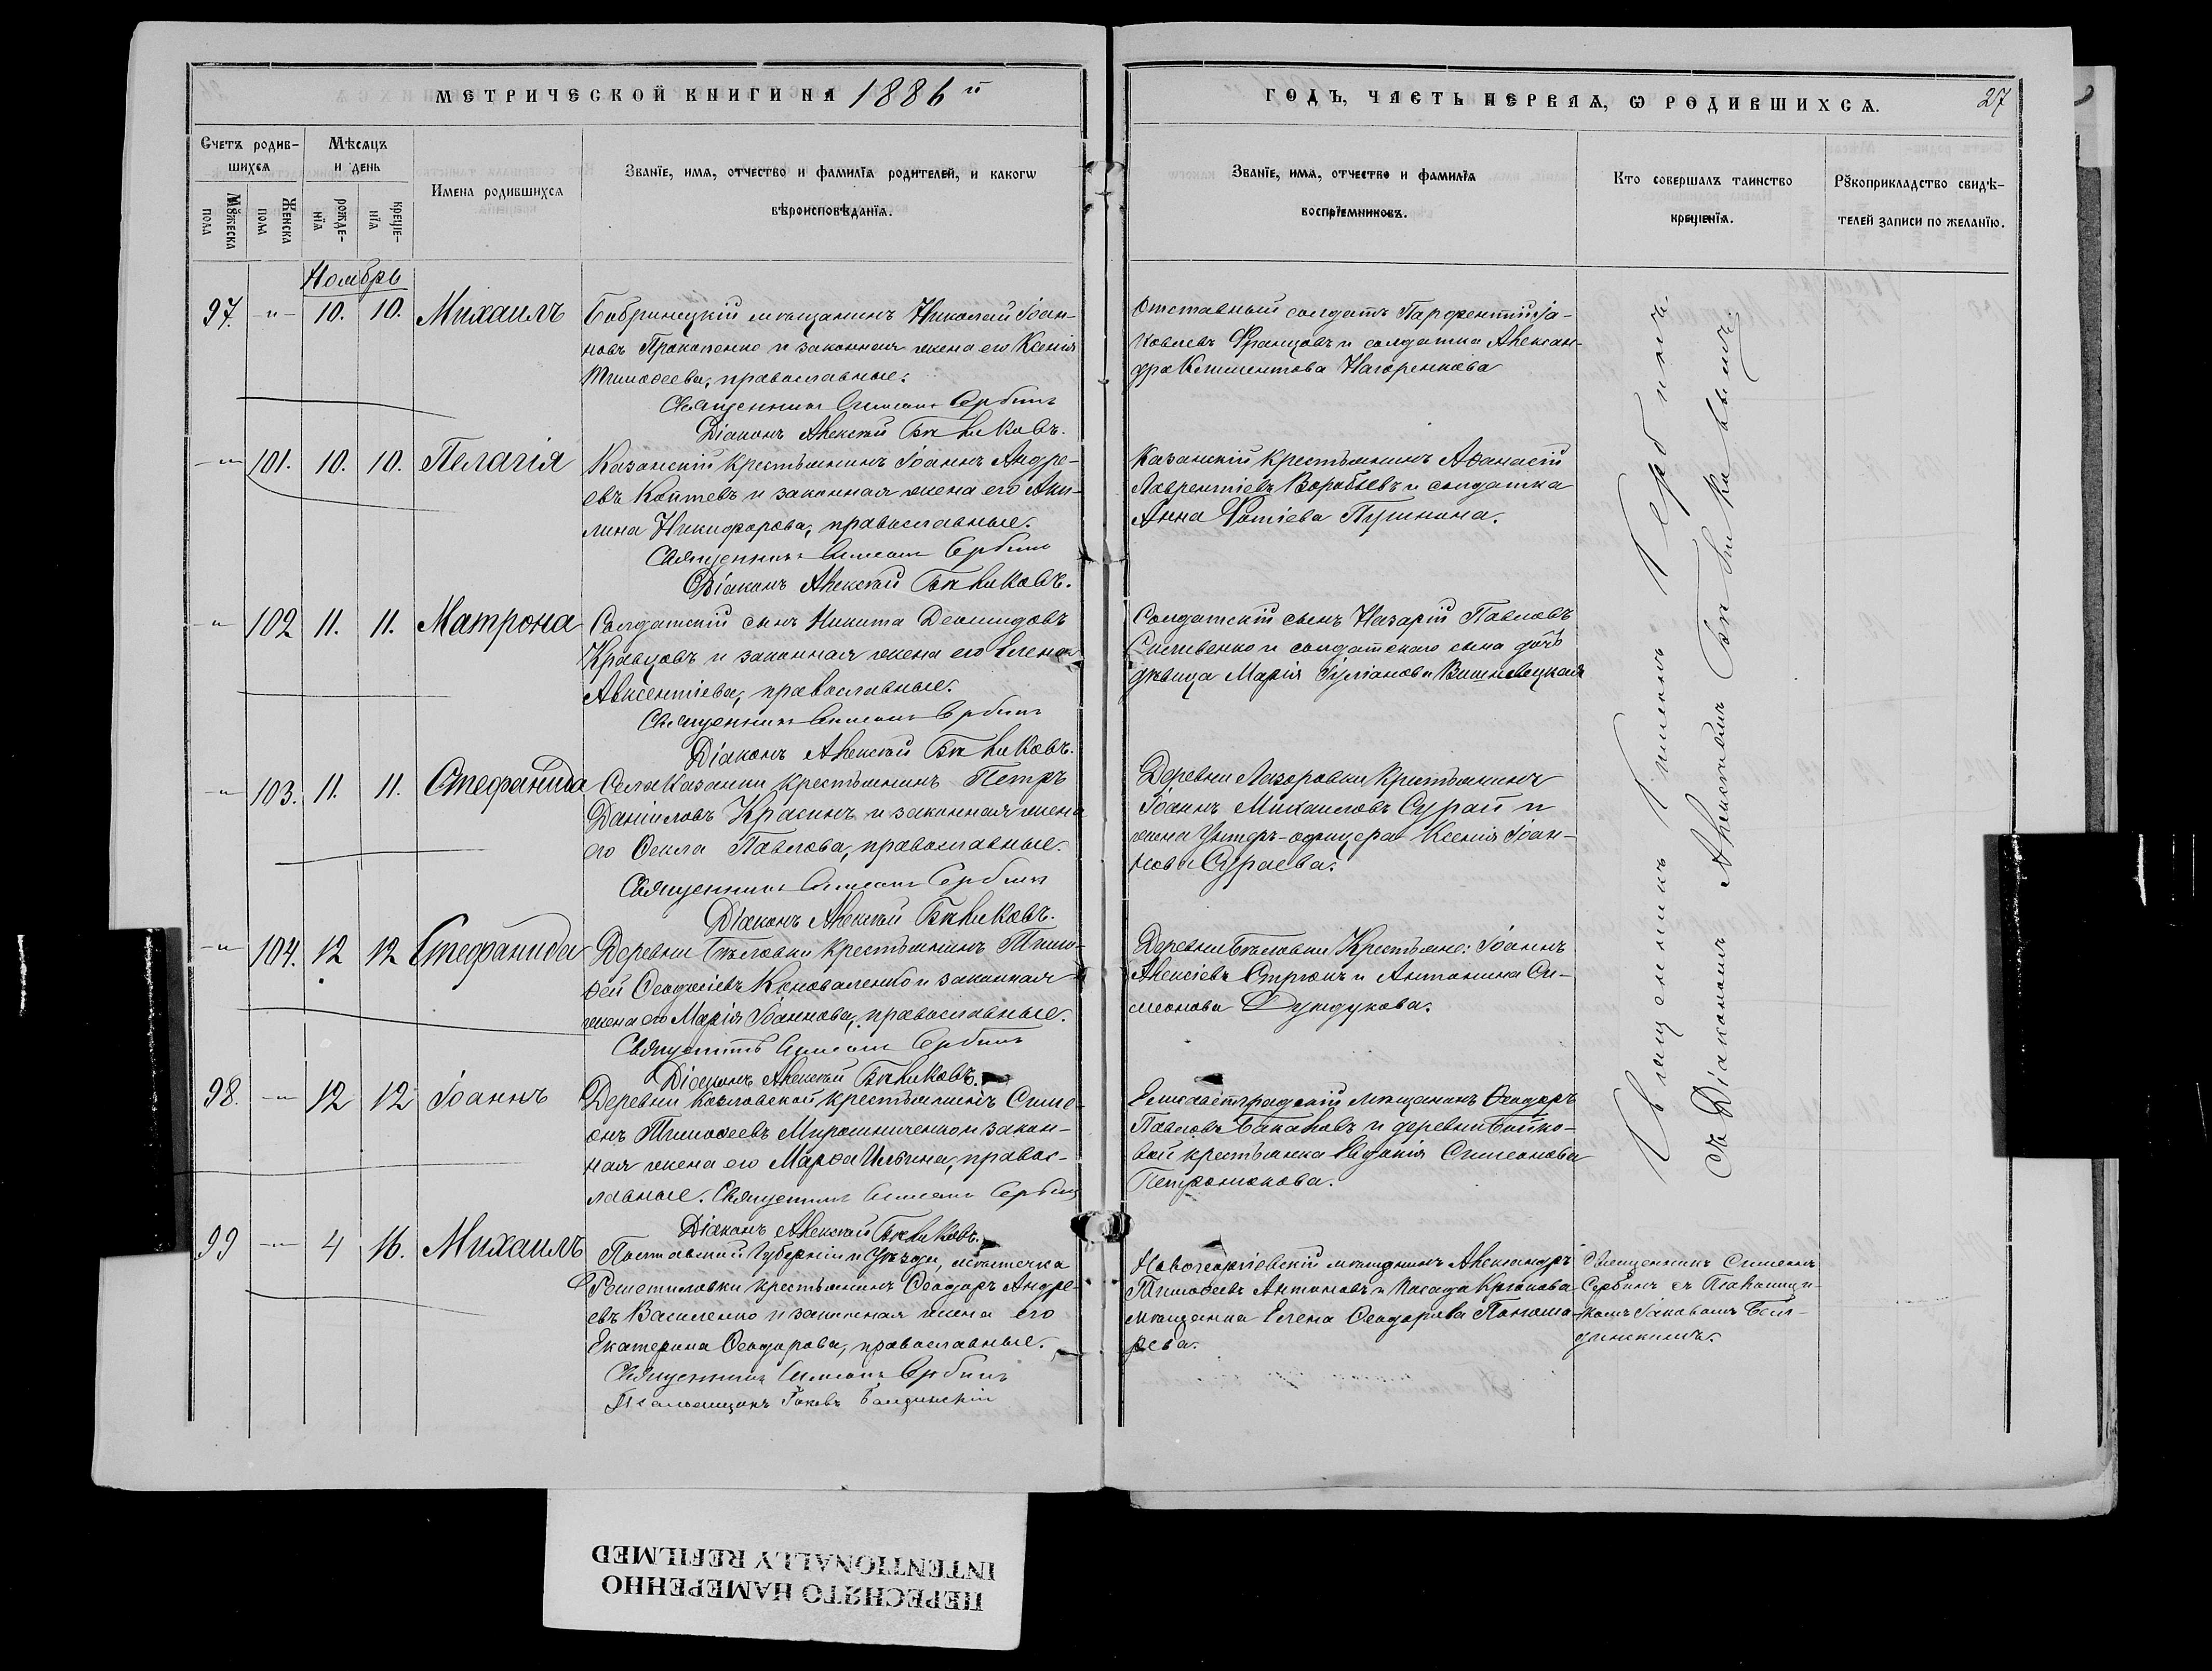 МЕТРИЧЕСКОЙ КНИГИ НА 1886 й
ГОДЪ, ЧАСТЬ ПЕРВАЯ, Ѡ РОДИВШИХСѦ.
27
Счетъ родив-
шихсѧ
Мѣсѧцъ
и день
Имена родившихсѧ
Званїе, имѧ, отчество и фамилїѧ родителей, и какогѡ
вѣроисповѣданїѧ.
Мꙋжеска
пола
Женска
пола
рожде-
нїѧ
креще-
нїѧ
Званїе, имѧ, отчество и фамилїѧ
воспрїемниковъ.
Кто совершалъ таинство
крещенїѧ.
Рꙋкоприкладство свидѣ-
телей записи по желанїю.
Ноябрь
97. -"- 10. 10. Михаилъ
Бобринецкій мѣщанинъ Николай Іоан-
новъ Прокопенко и законная жена его Ксенія
Тимоѳеева, православные.
Священникъ Симеонъ Сербинъ
Діаконъ Алексѣй
Отставный солдатъ Парфентій Іа-
ковлевъ Францовъ и солдатка Алексан-
дра Климентова Нагоренкова
-"- 101. 10. 10. Пелагія
Казанскій крестьянинъ Іоаннъ Андре-
евъ Коптевъ и законная жена его Аки-
лина Никифорова, православные.
Священникъ Симеонъ Сербинъ
Діаконъ Алексѣй
Казанскій крестьянинъ Аѳанасій
Лаврентіевъ Воробьевъ и солдатка
Анна Фотіева Пушкина.
-"- 102 11. 11. Матрона
Солдатскій сынъ Никита Демидовъ
Кравцовъ и законная жена его Елена
Авксентіева, православные.
Священникъ Симеонъ Сербинъ
Діаконъ Алексѣй
Солдатскій сынъ Назарій Павловъ
и солдатскаго сына дочь
дѣвица Марія Іуліанова Вишневецкая
-"- 103. 11. 11. Стефанида
Села Казанки крестьянинъ Петръ
Даніиловъ Красинъ и законная жена
его Ѳекла Павлова, православные.
Священникъ Симеонъ Сербинъ
Діаконъ Алексѣй
Деревни Лазоровки крестьянинъ
Іоаннъ Михаиловъ Сурай и
жена Унтеръ-офицера Ксенія Іоан-
нова Сураева.
-"- 104. 12 12 Стефанида
Деревни крестьянинъ Тимо-
ѳей Ѳеодосіевъ Коноваленко и законная
жена его Марія Іоаннова, православные.
Священникъ Симеонъ Сербинъ
Діаконъ Алексѣй
Деревни крестьяне: Іоаннъ
Алексіевъ и Антонина Си-
меонова Дундукова.
98. -"- 12 12 Іоаннъ
Деревни Козловской крестьянинъ Симе-
онъ Тимоѳеевъ Мирошниченко и закон-
ная жена его Марѳа Ильина, правос-
лавные. Священникъ Симеонъ Сербинъ
Діаконъ Алексѣй
Елисаветградскій мѣщанинъ Ѳеодоръ
Павловъ и деревни Бойко-
вой крестьянка Евдокія Симеонова
Петронюкова.
99 -"- 4 16. Михаилъ
Полтавской Губерніи и Уѣзда, мѣстечка
Решетиловки крестьянинъ Ѳеодоръ Андре-
евъ Василенко и законная жена его
Екатерина Ѳеодорова, православные.
Священникъ Симеонъ Сербинъ
Псаломщикъ Іаковъ
Новогеоргіевскій мѣщанинъ Александръ
Тимоѳеевъ Антоновъ и посада Крюкова
мѣщанка Елена Ѳеодорова Понома-
рева.
Священникъ Симеонъ
Сербинъ съ Псаломщи-
комъ Іаковомъ
Священникъ Симеонъ Сербинъ
съ Діакономъ Алексѣемъ
ПЕРЕСНЯТО НАМЕРЕННО
INTENTIONALLY REFILMED